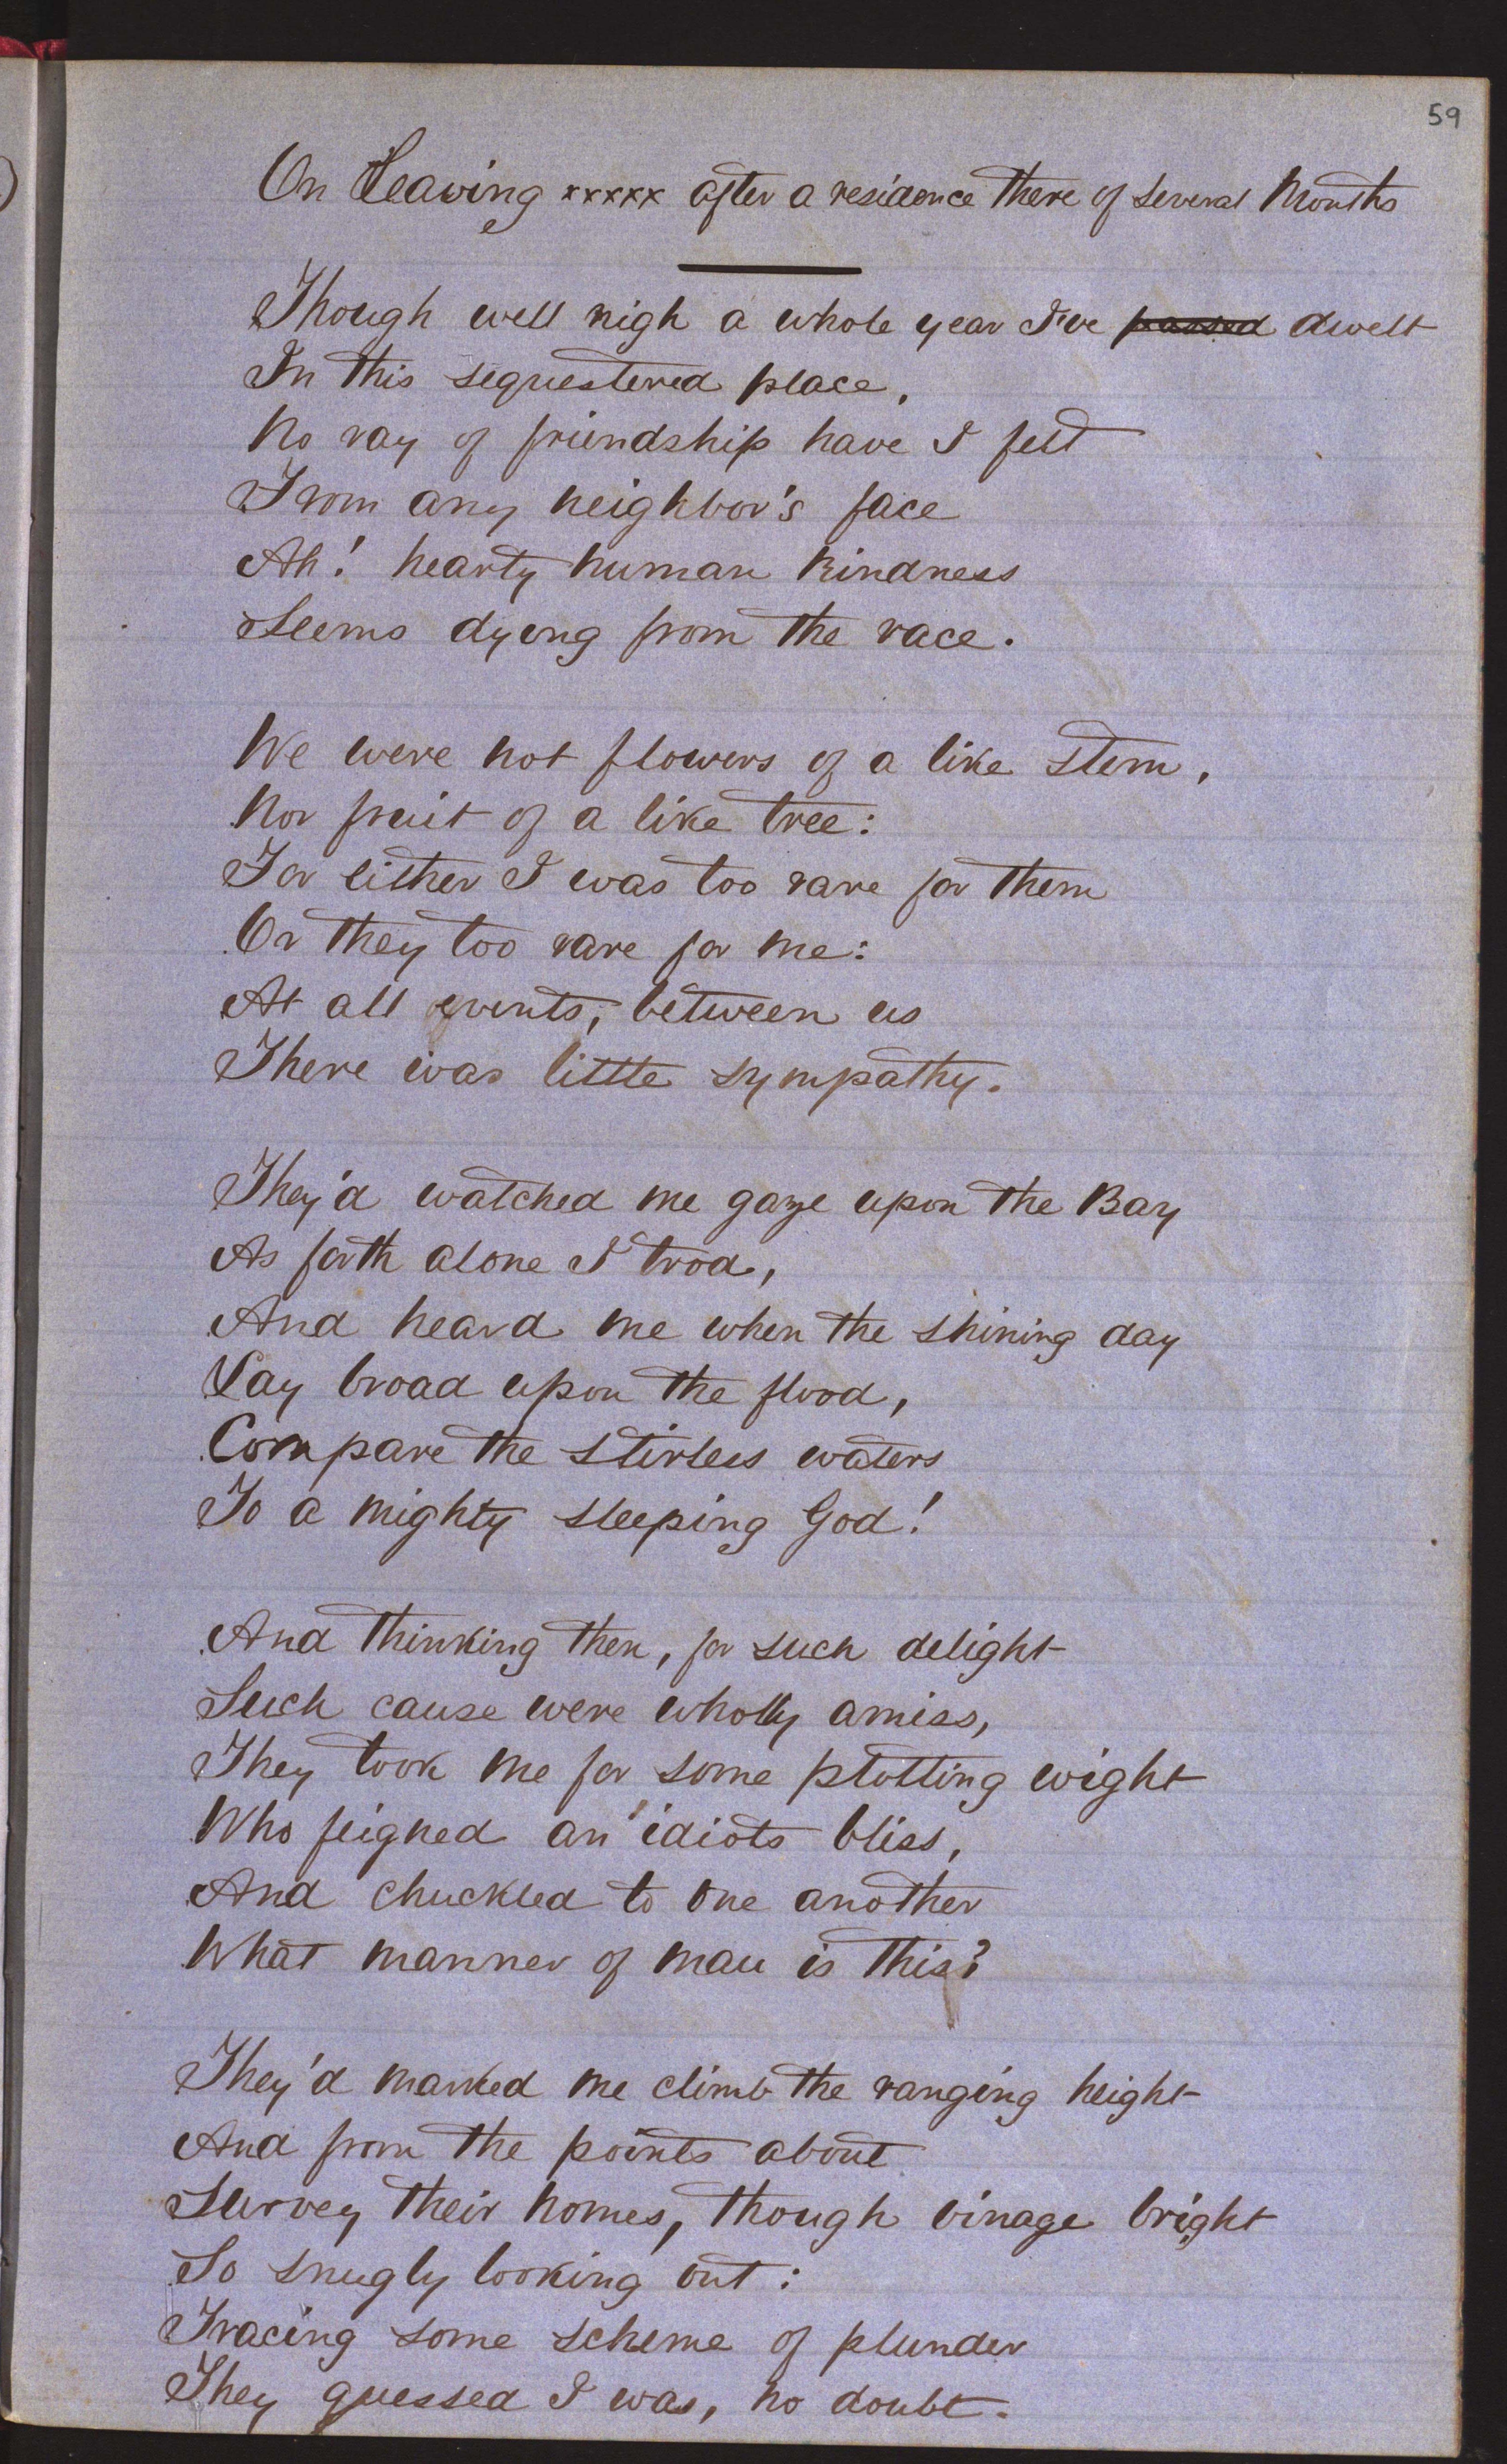 59
On Leaving ××××× after a residence there of several Months
Though well nigh a whole year I've passed dwelt
In this sequestered place,
No ray of friendship have I felt
From any neighbor's face
Ah! hearty human kindness
Seems dying from the race.
We were not flowers of a like stem,
Nor fruit of a like tree:
For either I was too rare for them
Or they too rare for me:
At all events, between us
There was little sympathy.
They'd watched me gaze upon the Bay
As forth alone I trod,
And heard me when the shining day
Lay broad upon the flood,
Compare the stirless waters
To a mighty sleeping God!
And thinking then, for such delight
Such cause were wholly amiss,
They took me for some plotting wight
Who feigned an idiots bliss,
And chuckled to one another
What manner of man is this?
They'd marked me climb the ranging height
And from the points about
Survey their homes, though vinage bright
So snugly looking out:
Tracing some scheme of plunder
They guessed I was, no doubt.